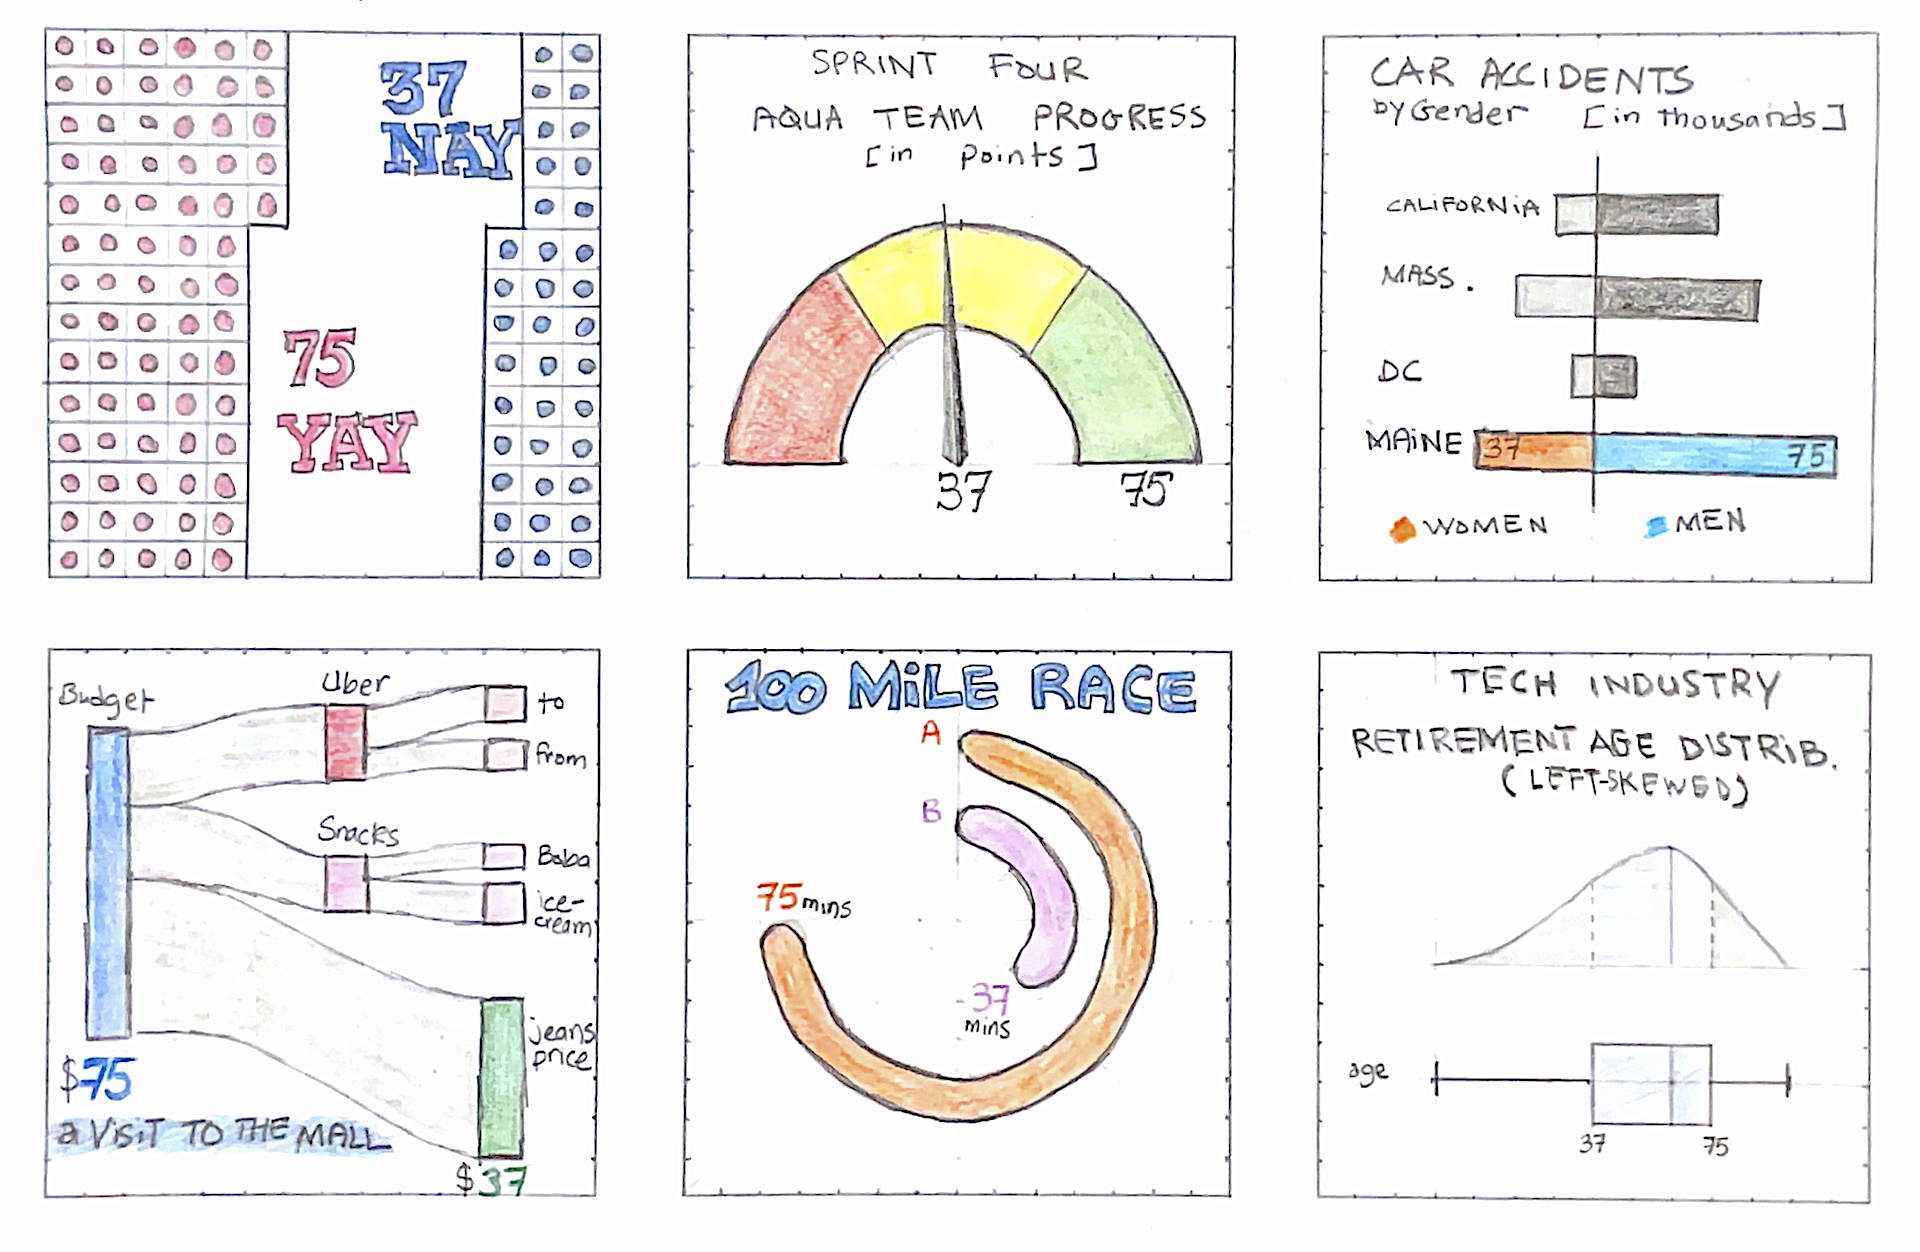 37
NAY
75
YAY
SPRINT FOUR
AQUA TEAM PROGRESS
[in points]
37
75
CAR ACCIDENTS
by Gender [in thousands]
CALIFORNiA
MASS.
DC
MAiNE
37
75
WOMEN
MEN
Budget
Uber
to
from
Snacks
Boba
ice-
cream
jeans
price
$75
a ViSiT TO THE MALL
$37
100 MiLE RACE
A
B
75 mins
37
mins
TECH INDUSTRY
RETIREMENT AGE DISTRiB.
(LEFT-SKEWED)
age
37
75